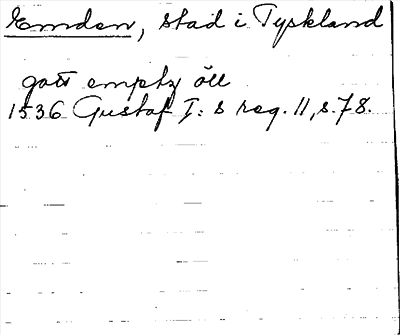 Emden, stad i Tyskland
gott emptz öll
1536 Gustaf I:s reg. 11, s. 78.